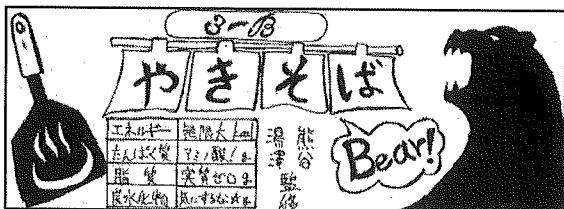 3-B
やきそば
エネルギー 無限大 kcal
たんぱく質 アミノ酸！g
脂質 実質ゼロg
炭水化物 気にするな☆g
熊谷
湯津
監修
Bear!